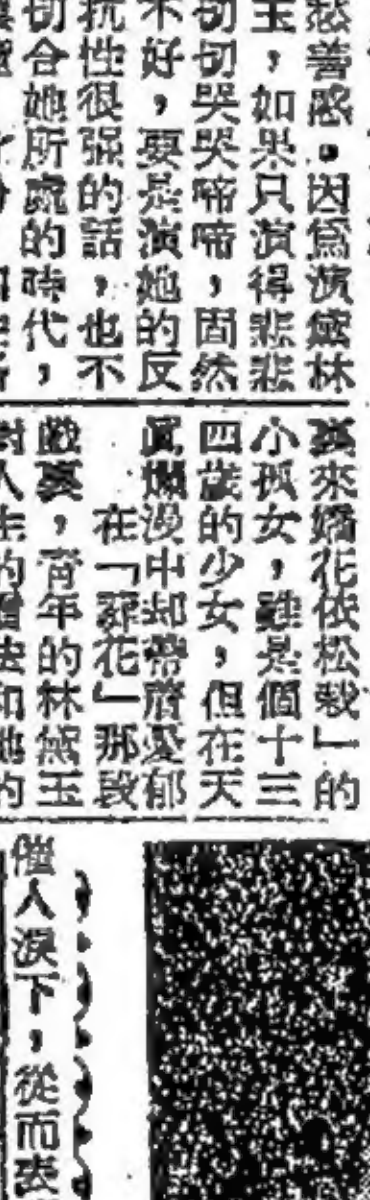 慈善感。因爲演黛林
玉，如果只演得悲悲
切切哭哭啼啼，固然
不好，要是演她的反
抗性很强的話，也不
切合她所處的時代，
裊來嬌花依松栽」的
小孤女，雖是個十三
四歲的少女，但在天
眞爛漫中却帶着憂郁
在「葬花」那段
戲裏，青年的林黛玉
催人淚下，從而表